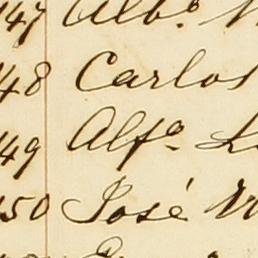 147 Alb.º
148 Carlos
149 Alf.º
150 José